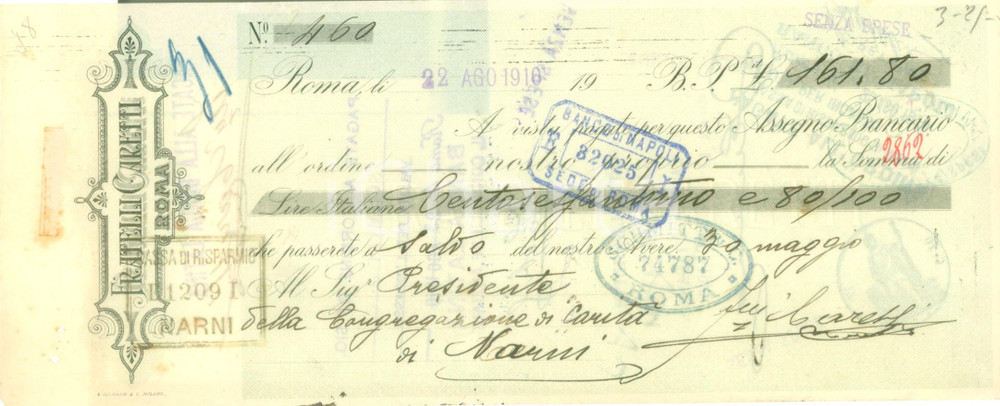 N.º 460
SENZA SPESE
3-25-
Roma, li 22 AGO 1910 19 B. P. £. 161.80
A vista pagate per questo Assegno Bancario
2862
all'ordine nostro proprio la Somma di
Lire Italiane Centosessantuno e 80/100
che passerete a saldo del nostro Avere. 30 maggio
Al Sig.r Presidente
della Congregazione di Carità
di Narni
F.lli Caretti
FRATELLI CARETTI
ROMA
31
BANCO DI NAPOLI
SEDE DI ROMA
74787
ROMA
CASSA DI RISPARMIO
1209
NARNI